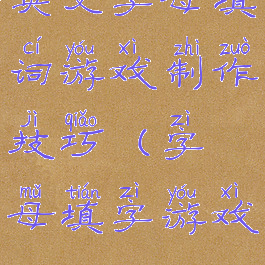 英文字母填
cí yóu xì zhì zuò
词游戏制作
jì qiǎo zì
技巧（字
mǔ tián zì yóu xì
母填字游戏